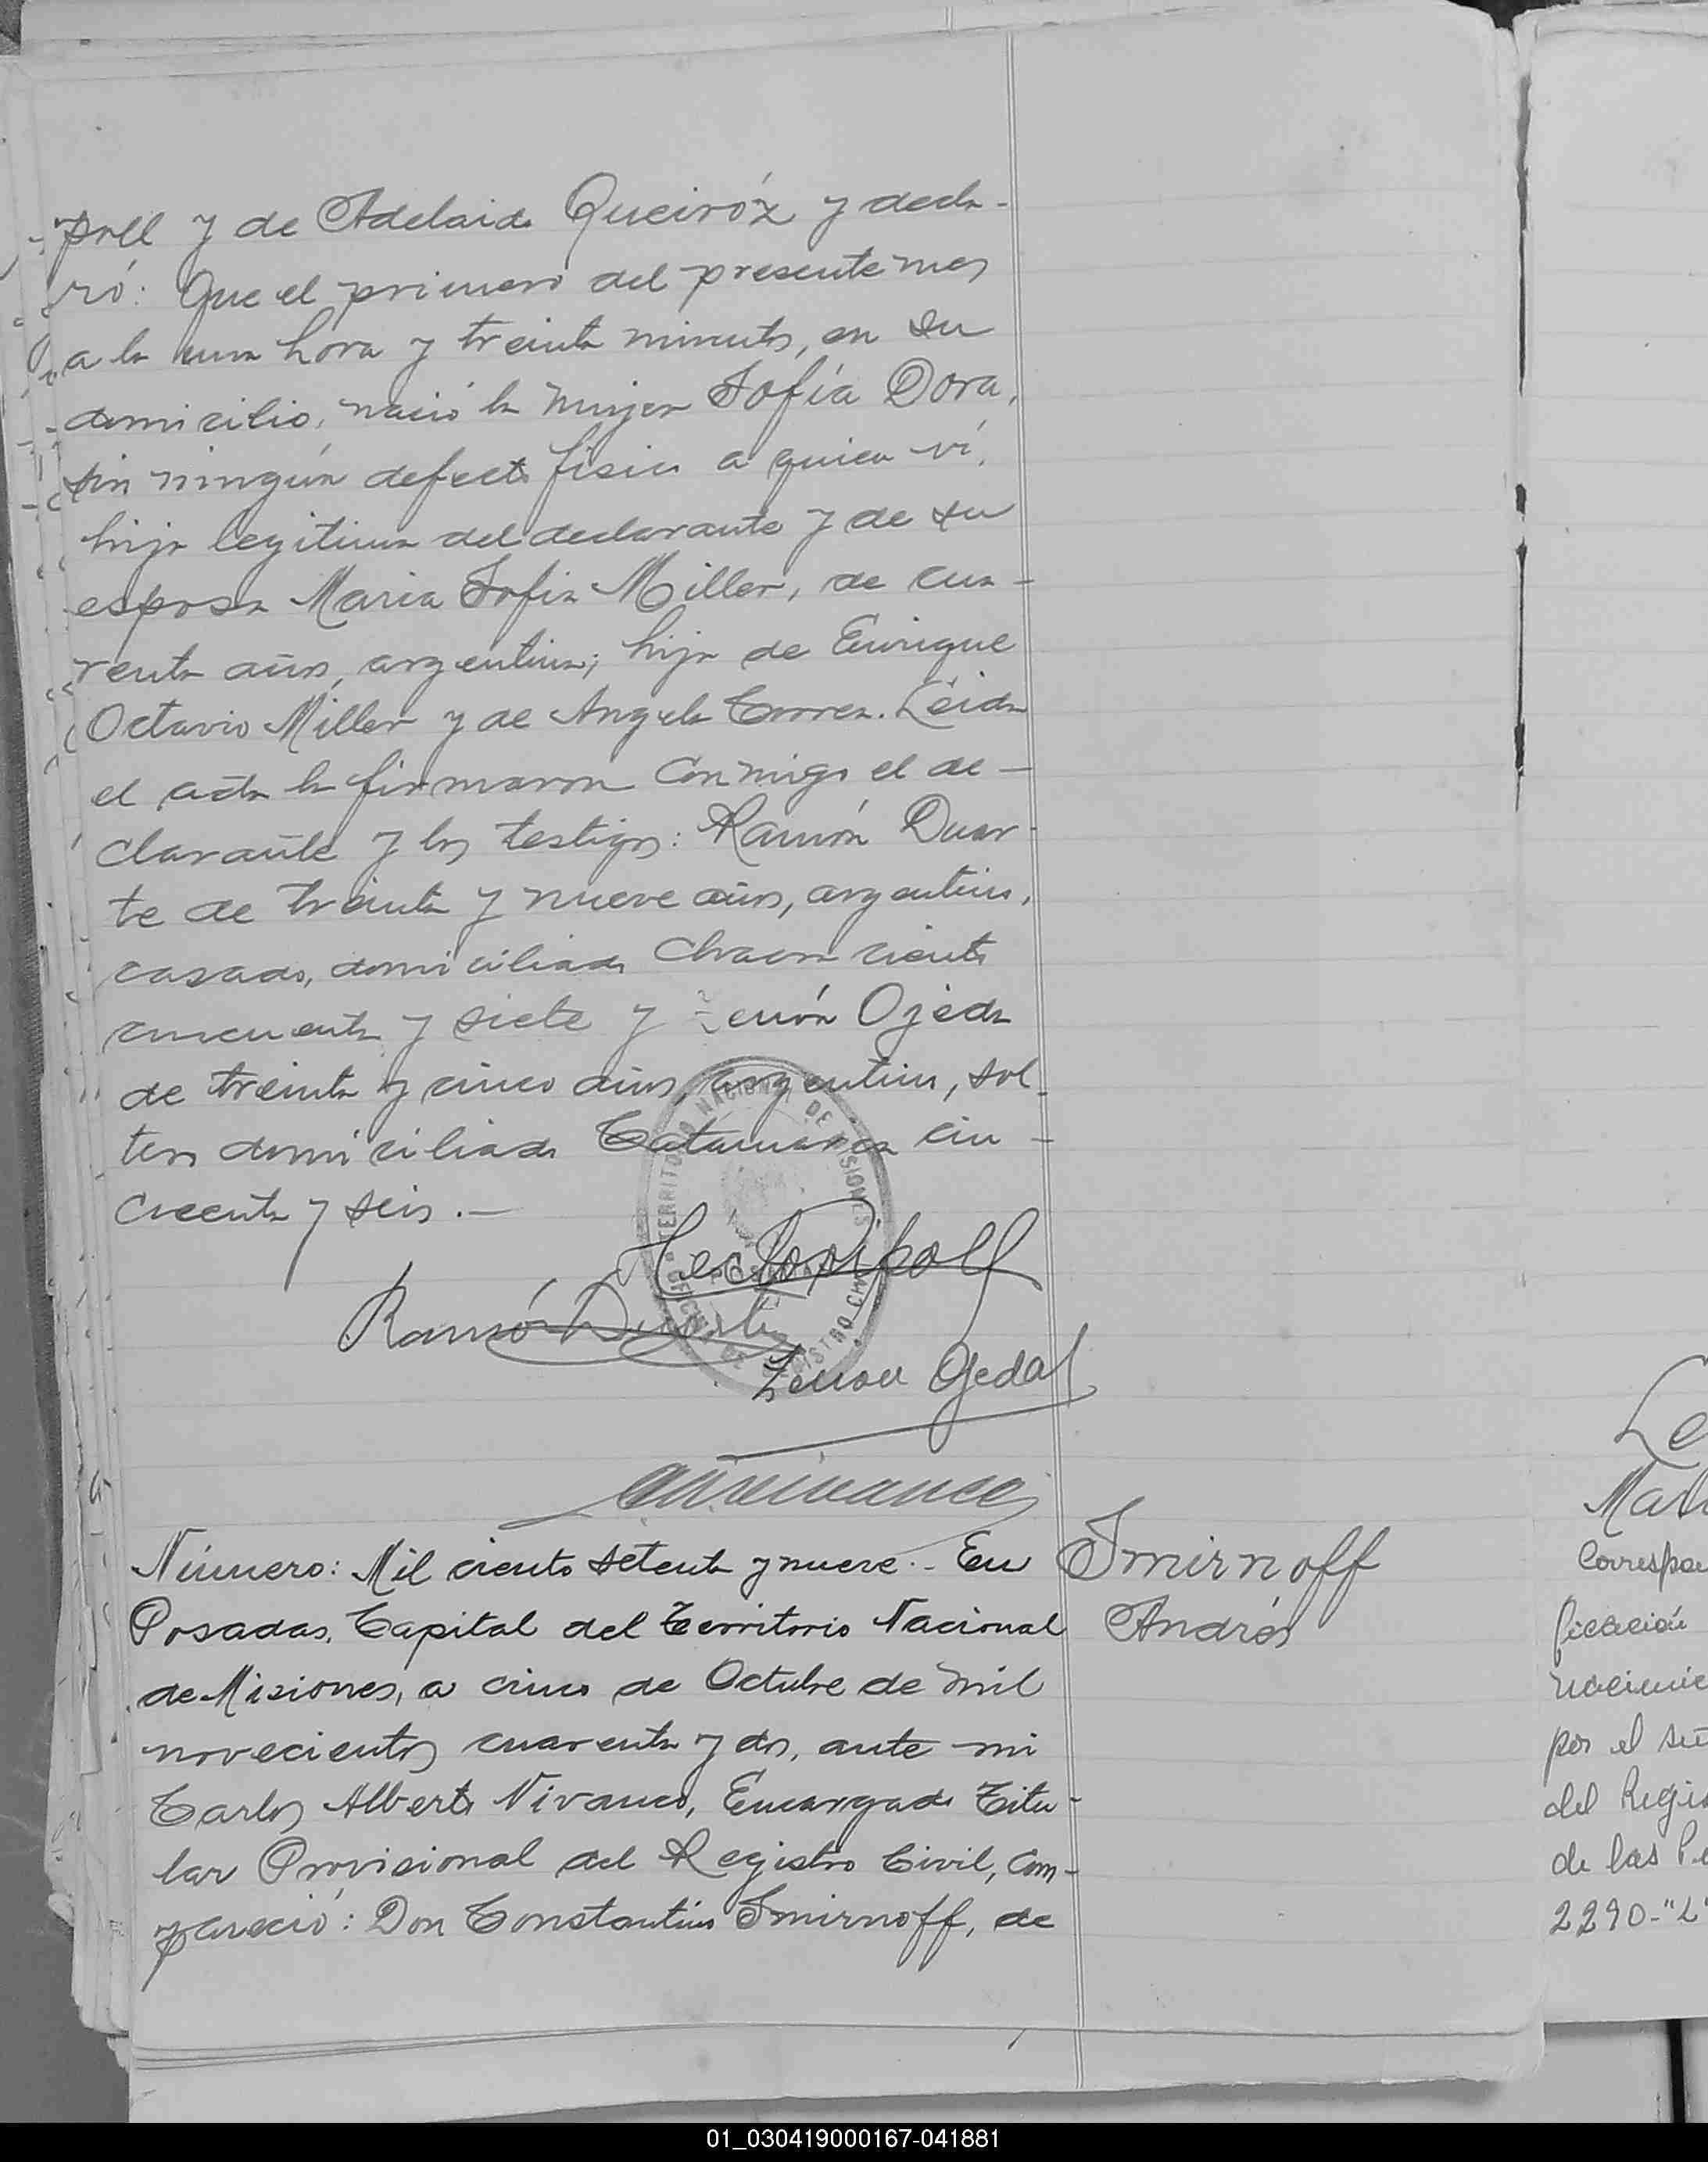 poll y de Adelaida Queiróz y decla-
ró: Que el primero del presente mes
a la una hora y treinta minutos, en su
domicilio, nació la mujer Sofía Dora,
sin ningún defecto físico a quien ví,
hija legitima del declarante y de su
esposa Maria Sofia Miller, de cua-
renta años, argentina; hija de Enrique
Octavio Miller y de Angela Correa. Leida
el acta la firmaron conmigo el de-
clarante y los testigos: Ramón Duar-
te de treinta y nueve años, argentino,
casado, domiciliado Chacra ciento
cincuenta y siete y Zenón Ojeda
de treinta y cinco años, argentino, sol-
tero domiciliado Catamarca cin-
cuenta y seis.-
TERRITORIO NACIONAL DE MISIONES
POSADAS
OFICINA DE REGISTRO CIVIL
Ramón Duarte
Zenon Ojeda
Número: Mil ciento setenta y nueve.- En
Posadas, Capital del Territorio Nacional
de Misiones, a cinco de Octubre de mil
novecientos cuarenta y dos, ante mi
Carlos Alberto Vivanco, Encargado Titu-
lar Provisional del Registro Civil, com-
pareció: Don Constantino Smirnoff, de
Smirnoff
Andrés
Le
Corresp
ficación
nacimie
por el se
del Regis
de las Pe
2290-"L"
01_030419000167-041881